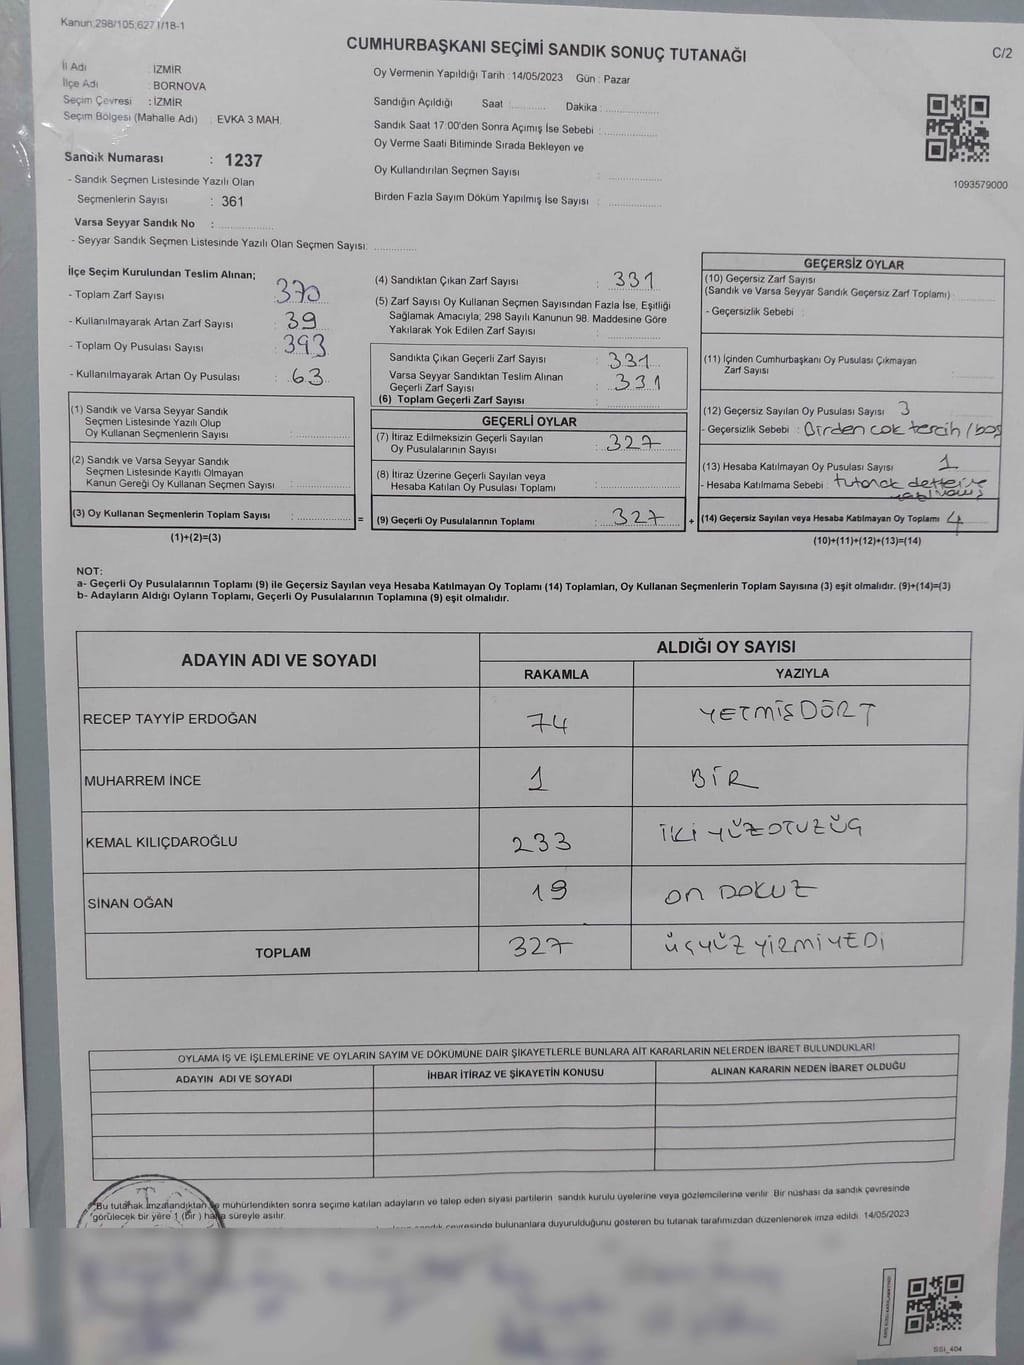 Kanun:298/105;6271/18-1
CUMHURBAŞKANI SEÇİMİ SANDIK SONUÇ TUTANAĞI
C/2
İl Adı : İZMİR
İlçe Adı : BORNOVA
Seçim Çevresi : İZMİR
Seçim Bölgesi (Mahalle Adı) : EVKA 3 MAH.
Sandık Numarası : 1237
- Sandık Seçmen Listesinde Yazılı Olan
Seçmenlerin Sayısı : 361
Varsa Seyyar Sandık No :
- Seyyar Sandık Seçmen Listesinde Yazılı Olan Seçmen Sayısı:
Oy Vermenin Yapıldığı Tarih : 14/05/2023 Gün : Pazar
Sandığın Açıldığı Saat : Dakika :
Sandık Saat 17:00'den Sonra Açımış İse Sebebi :
Oy Verme Saati Bitiminde Sırada Bekleyen ve
Oy Kullandırılan Seçmen Sayısı :
Birden Fazla Sayım Döküm Yapılmış İse Sayısı :
1093579000
İlçe Seçim Kurulundan Teslim Alınan;
- Toplam Zarf Sayısı : 370
- Kullanılmayarak Artan Zarf Sayısı : 39
- Toplam Oy Pusulası Sayısı : 393
- Kullanılmayarak Artan Oy Pusulası : 63
(1) Sandık ve Varsa Seyyar Sandık
Seçmen Listesinde Yazılı Olup
Oy Kullanan Seçmenlerin Sayısı :
(2) Sandık ve Varsa Seyyar Sandık
Seçmen Listesinde Kayıtlı Olmayan
Kanun Gereği Oy Kullanan Seçmen Sayısı :
(3) Oy Kullanan Seçmenlerin Toplam Sayısı : =
(1)+(2)=(3)
(4) Sandıktan Çıkan Zarf Sayısı : 331
(5) Zarf Sayısı Oy Kullanan Seçmen Sayısından Fazla İse, Eşitliği
Sağlamak Amacıyla; 298 Sayılı Kanunun 98. Maddesine Göre
Yakılarak Yok Edilen Zarf Sayısı :
Sandıkta Çıkan Geçerli Zarf Sayısı : 331
Varsa Seyyar Sandıktan Teslim Alınan
Geçerli Zarf Sayısı : 331
(6) Toplam Geçerli Zarf Sayısı :
GEÇERLİ OYLAR
(7) İtiraz Edilmeksizin Geçerli Sayılan
Oy Pusulalarının Sayısı : 327
(8) İtiraz Üzerine Geçerli Sayılan veya
Hesaba Katılan Oy Pusulası Toplamı :
(9) Geçerli Oy Pusulalarının Toplamı : 327 +
GEÇERSİZ OYLAR
(10) Geçersiz Zarf Sayısı
(Sandık ve Varsa Seyyar Sandık Geçersiz Zarf Toplamı) :
- Geçersizlik Sebebi :
(11) İçinden Cumhurbaşkanı Oy Pusulası Çıkmayan
Zarf Sayısı :
(12) Geçersiz Sayılan Oy Pusulası Sayısı : 3
- Geçersizlik Sebebi : Birden çok tercih / boş
(13) Hesaba Katılmayan Oy Pusulası Sayısı : 1
- Hesaba Katılmama Sebebi : tutanak deftere
(14) Geçersiz Sayılan veya Hesaba Katılmayan Oy Toplamı : 4
(10)+(11)+(12)+(13)=(14)
NOT:
a- Geçerli Oy Pusulalarının Toplamı (9) ile Geçersiz Sayılan veya Hesaba Katılmayan Oy Toplamı (14) Toplamları, Oy Kullanan Seçmenlerin Toplam Sayısına (3) eşit olmalıdır. (9)+(14)=(3)
b- Adayların Aldığı Oyların Toplamı, Geçerli Oy Pusulalarının Toplamına (9) eşit olmalıdır.
ADAYIN ADI VE SOYADI
ALDIĞI OY SAYISI
RAKAMLA YAZIYLA
RECEP TAYYİP ERDOĞAN 74 YETMİŞ DÖRT
MUHARREM İNCE 1 BİR
KEMAL KILIÇDAROĞLU 233 İKİ YÜZ OTUZ ÜÇ
SİNAN OĞAN 19 ON DOKUZ
TOPLAM 327 ÜÇYÜZ YİRMİ YEDİ
OYLAMA İŞ VE İŞLEMLERİNE VE OYLARIN SAYIM VE DÖKÜMÜNE DAİR ŞİKAYETLERLE BUNLARA AİT KARARLARIN NELERDEN İBARET BULUNDUKLARI
ADAYIN ADI VE SOYADI İHBAR İTİRAZ VE ŞİKAYETİN KONUSU ALINAN KARARIN NEDEN İBARET OLDUĞU
Bu tutanak imzalandıktan ve mühürlendikten sonra seçime katılan adayların ve talep eden siyasi partilerin sandık kurulu üyelerine veya gözlemcilerine verilir. Bir nüshası da sandık çevresinde
görülecek bir yere 1 (bir) hafta süreyle asılır.
sandık çevresinde bulunanlara duyurulduğunu gösteren bu tutanak tarafımızdan düzenlenerek imza edildi. 14/05/2023
SSI_404